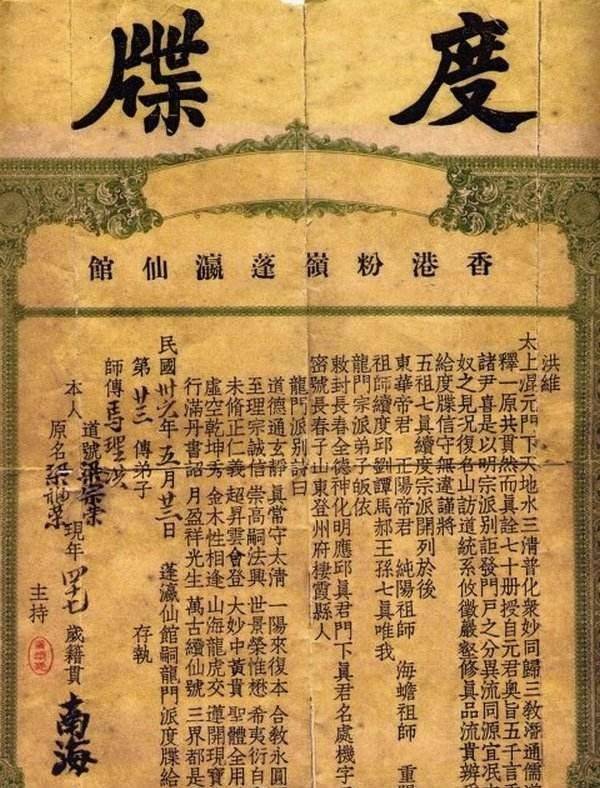 度牒
香港粉嶺蓬瀛仙館
洪維
太上混元門下天地水三清普化衆妙同歸三敎潛通儒道
釋一原共貫然而眞詮七十册授自元君奧旨五千言
諸尹喜是以明宗派別詎發門戶之分異流同源宜泯
奴之見況復名山訪道統系攸徵嚴壑修眞品流貴辨
給度牒信守無違謹將
五祖七眞續度宗派開列於後
東華帝君 正陽帝君 純陽祖師 海蟾祖師 重
祖師續度邱劉譚馬郝王孫七眞唯我
龍門宗派弟子皈依
敕封長春全德神化明應邱眞君門下眞君名處機字
密號長春子山東登州府棲霞縣人
龍門派別詩曰
道德通玄靜 眞常守太淸 一陽來復本 合敎永圓
至理宗誠信 崇高嗣法興 世景榮惟懋 希夷衍自
未脩正仁義 超昇雲會登 大妙中黃貴 聖體全用
虛空乾坤秀 金木性相逢 山海龍虎交 蓮開現寶
行滿丹書詔 月盈祥光生 萬古續仙號 三界都是
民國卅六年五月廿三日 蓬瀛仙館嗣龍門派度牒給
第廿三傳弟子 存執
師傅馬聖洪
道號梁宗榮
本人 現年四十七歲籍貫南海
原名梁福榮
主持